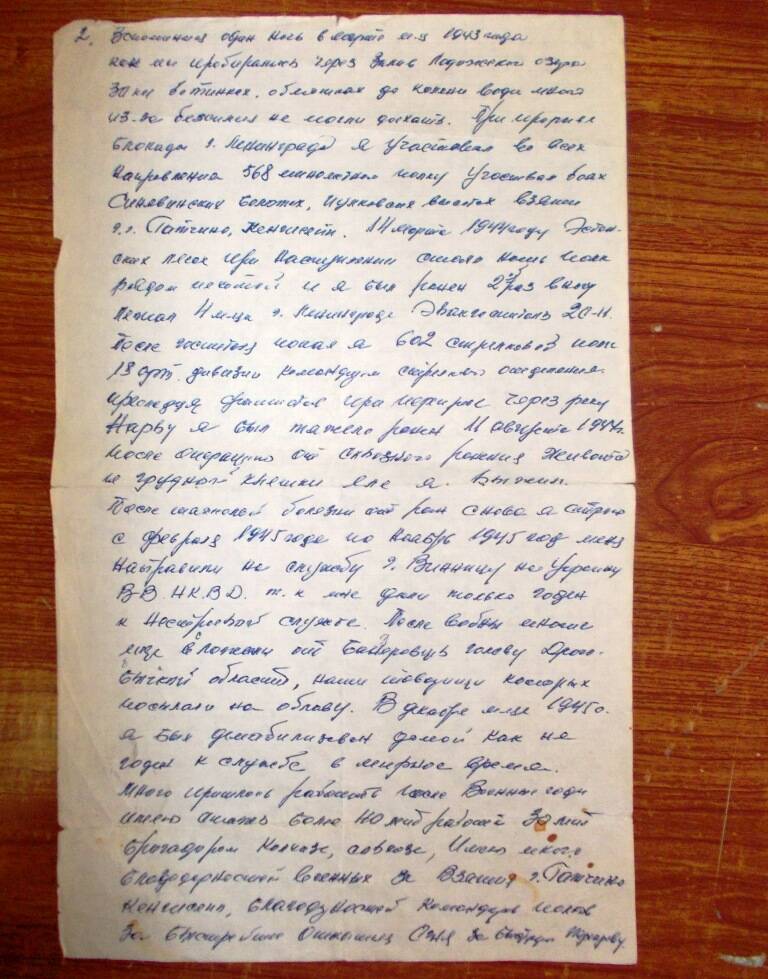 2. Вспоминая один ночь в марте м-ц 1943 года
как мы пробирались через залив Ладожского озера
обмотках до колени вода много
из-за не могли дыхать. При прорыве
блокады г. Ленинграда я участвовал во всех
направлениях 568 миномётном полку участвовал боях
Синявинских болотах, Пулковских высотах взятии
г.г. Гатчино, Кенгисепп. 14 марта 1944 году Эстон-
ских лесах при наступлении полк
рядом пехотой и я был ранен 2й раз
лежал 4 м-ца г. Ленинграде Эвакогоспиталь
После госпиталя попал я 602 стрелковой полк
дивизии командуем стрелкового отделения.
преследуя фашистов при через реку
Нарву я был тяжело ранен 11 августа 1944 г.
После операцию от сквозного ранения живота
и грудной клетки еле я выжил.
После болезни от ран снова я
с февраля 1945 года по ноябрь 1945 год меня
направили на службу г. Винницу на Украину
В-В. Н.К.В.Д. т.к мне дали только годен
к нестроевой службе. После войны многие
еще вложали от бандеровцев голову Дрого-
бычкой области, наши товарищи которых
посылали на облаву. В декабре м-це 1945 г.
я был демобилизован домой как не
годен к службе в мирное время.
Много пришлось работать после Военные годы
имею стаж более 40 лет работой 30 лет
бригадиром колхозе, совхозе, Имею много
благодарностей военных за Взятия г. Гатчино
Кенгисепп, благодарностей командира полков
За